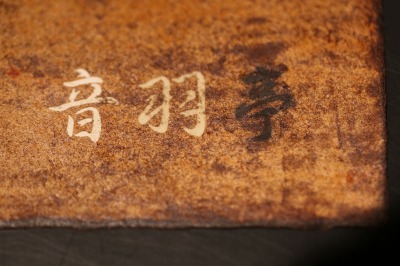 音羽亭